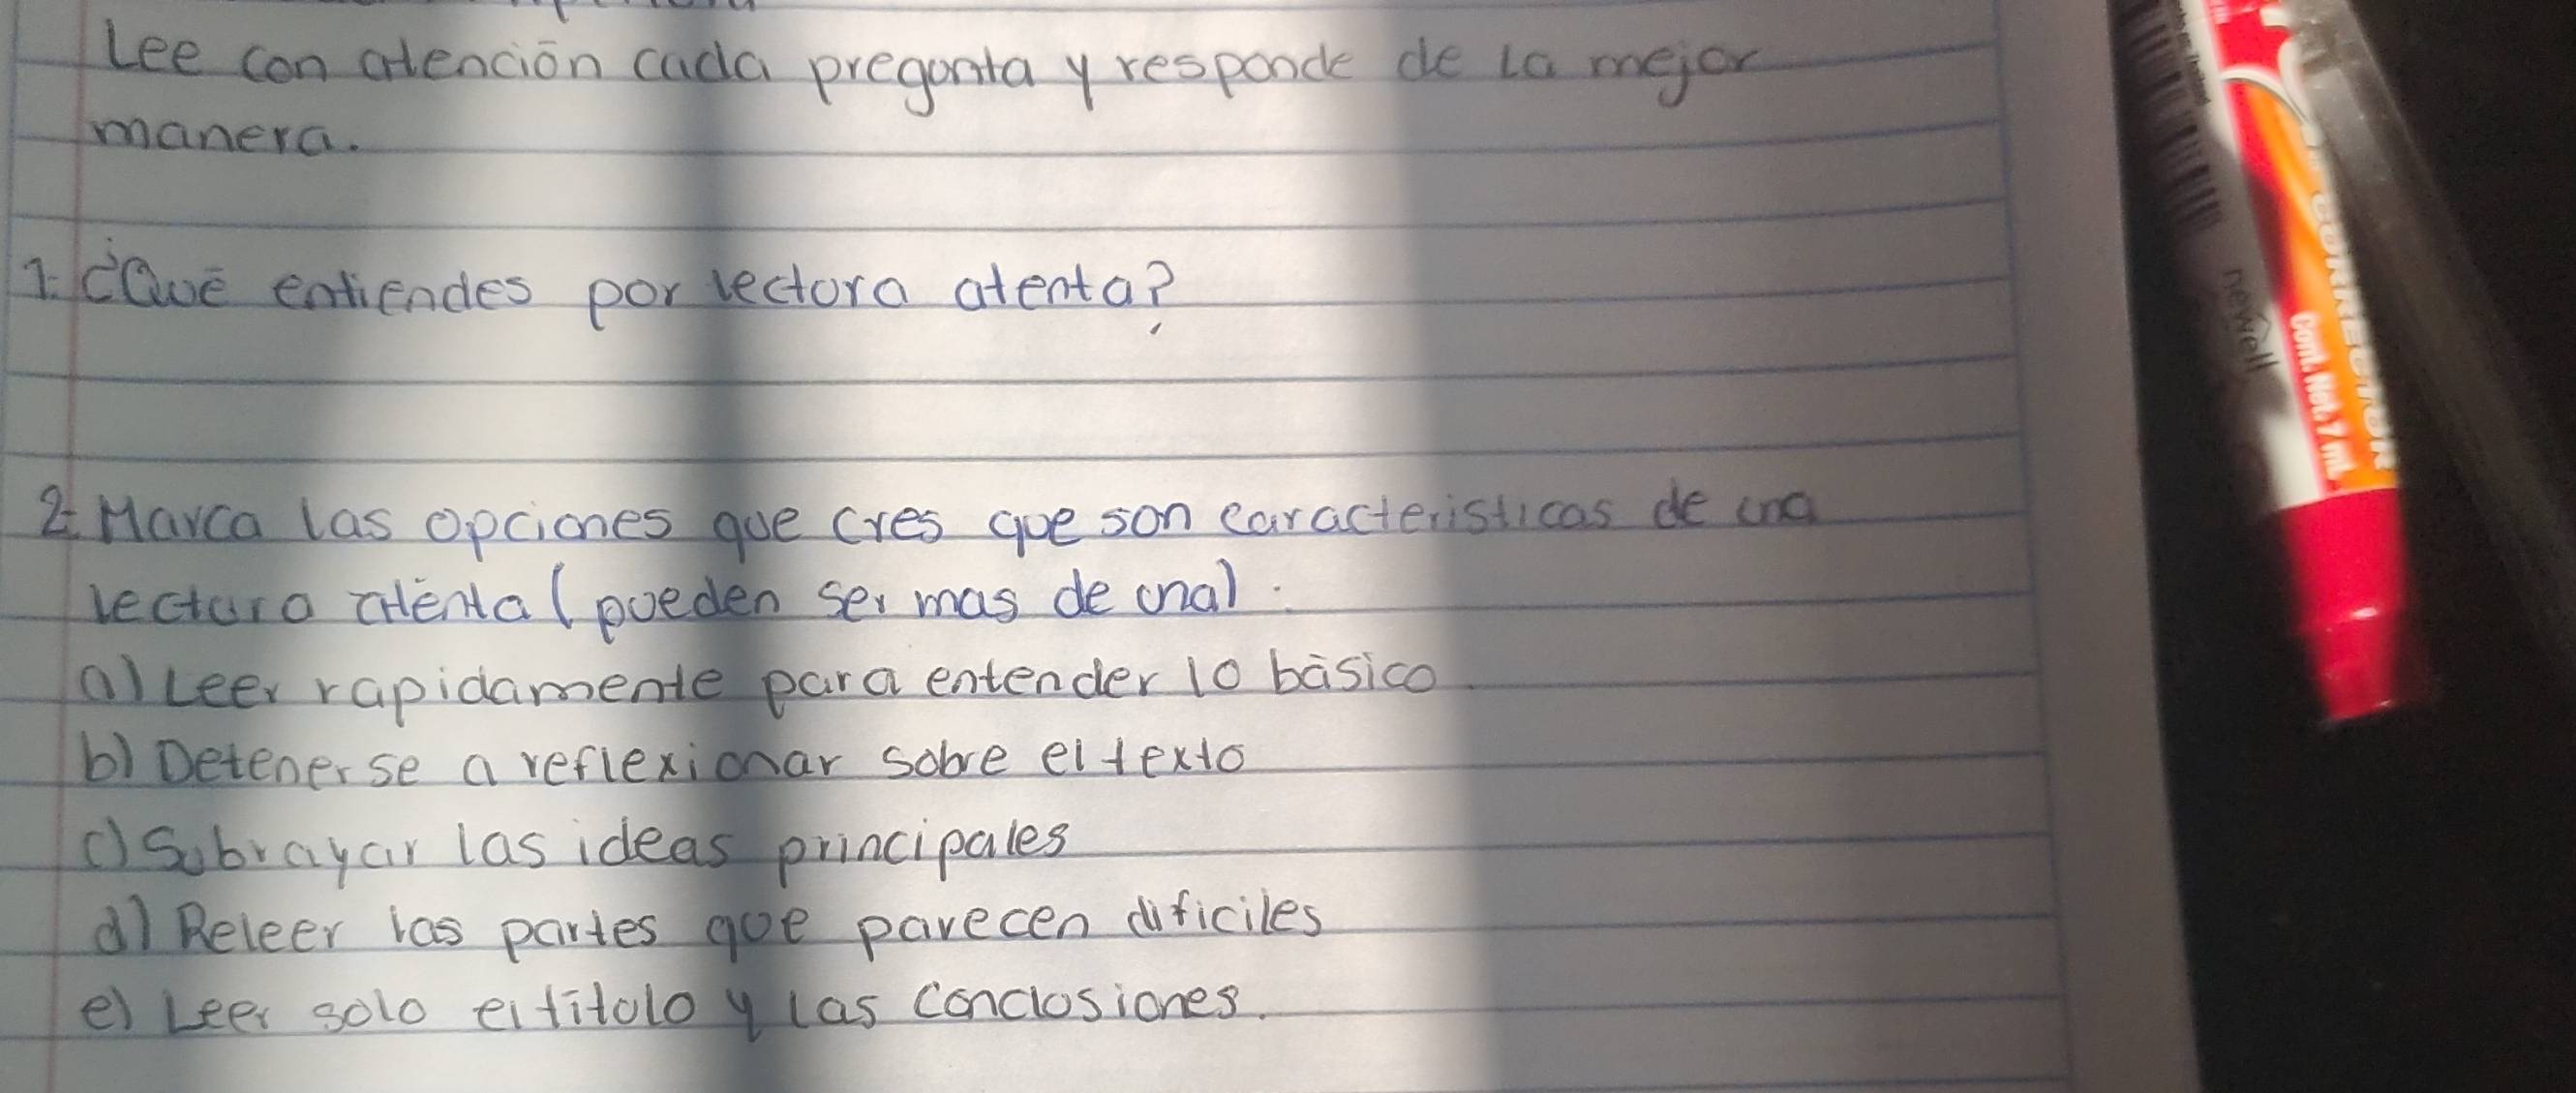 Lee con atención cada pregunta y responde de la mejor
manera.
1. ¿Qué entiendes por lectura atenta?
2. Marca las opciones que cres que son caracteristicas de una
lectura atenta (pueden ser mas de una).
a) Leer rapidamente para entender lo básico.
b) Detenerse a reflexionar sobre el texto
c) Subrayar las ideas principales
d) Releer las partes que parecen dificiles
e) Leer solo el título y las conclusiones.
CORRECTOR
Cont. Net. 7 ml
newell